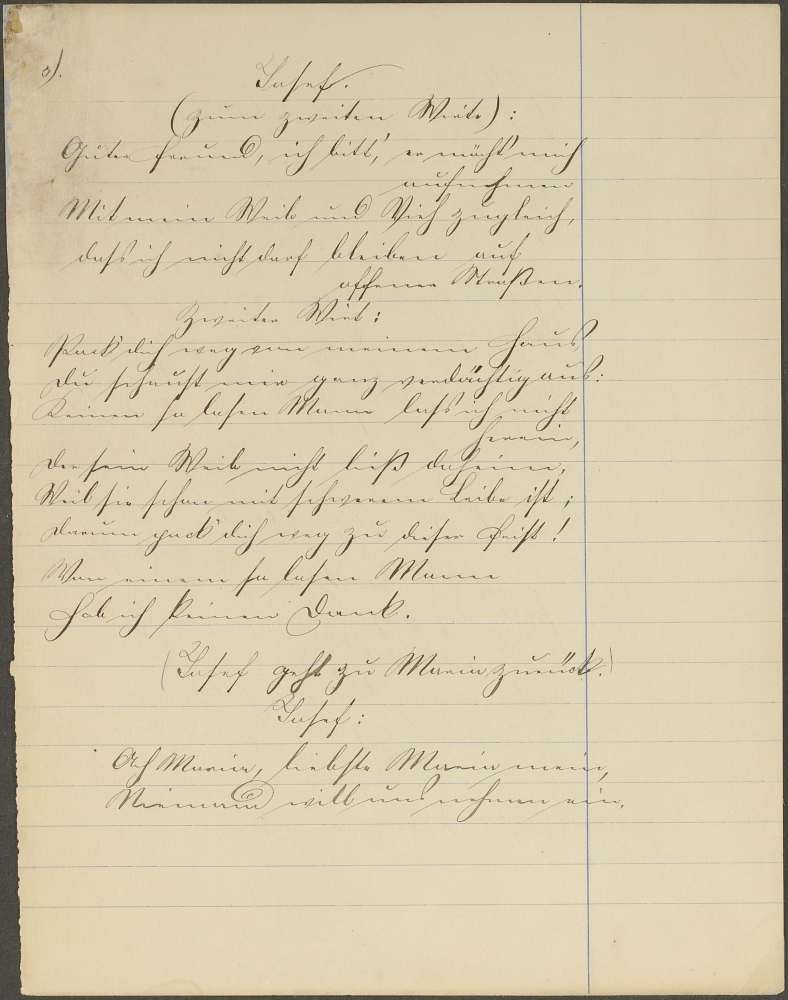 3).
Josef.
(zum zweiten Wirte):
Guter Freund, ich bitt', er möcht' mich
aufnehmen
Mit mein Weib und Vieh zugleich,
dass ich nicht darf bleiben auf
offener Straßen.
Zweiter Wirt:
Pack' dich weg von meinem Haus,
Du schaust mir ganz verdächtig aus:
Keinen so losen Mann lass' ich nicht
herein,
Der sein Weib nicht ließ daheim,
Weil sie schon mit schwerem Leibe ist;
Darum pack' dich weg zu dieser Frist!
Von einem so losen Mann
Hab ich keinen Dank.
(Josef geht zu Maria zurück.)
Josef:
Ach Maria, liebste Maria mein,
Niemand will uns nehmen ein.